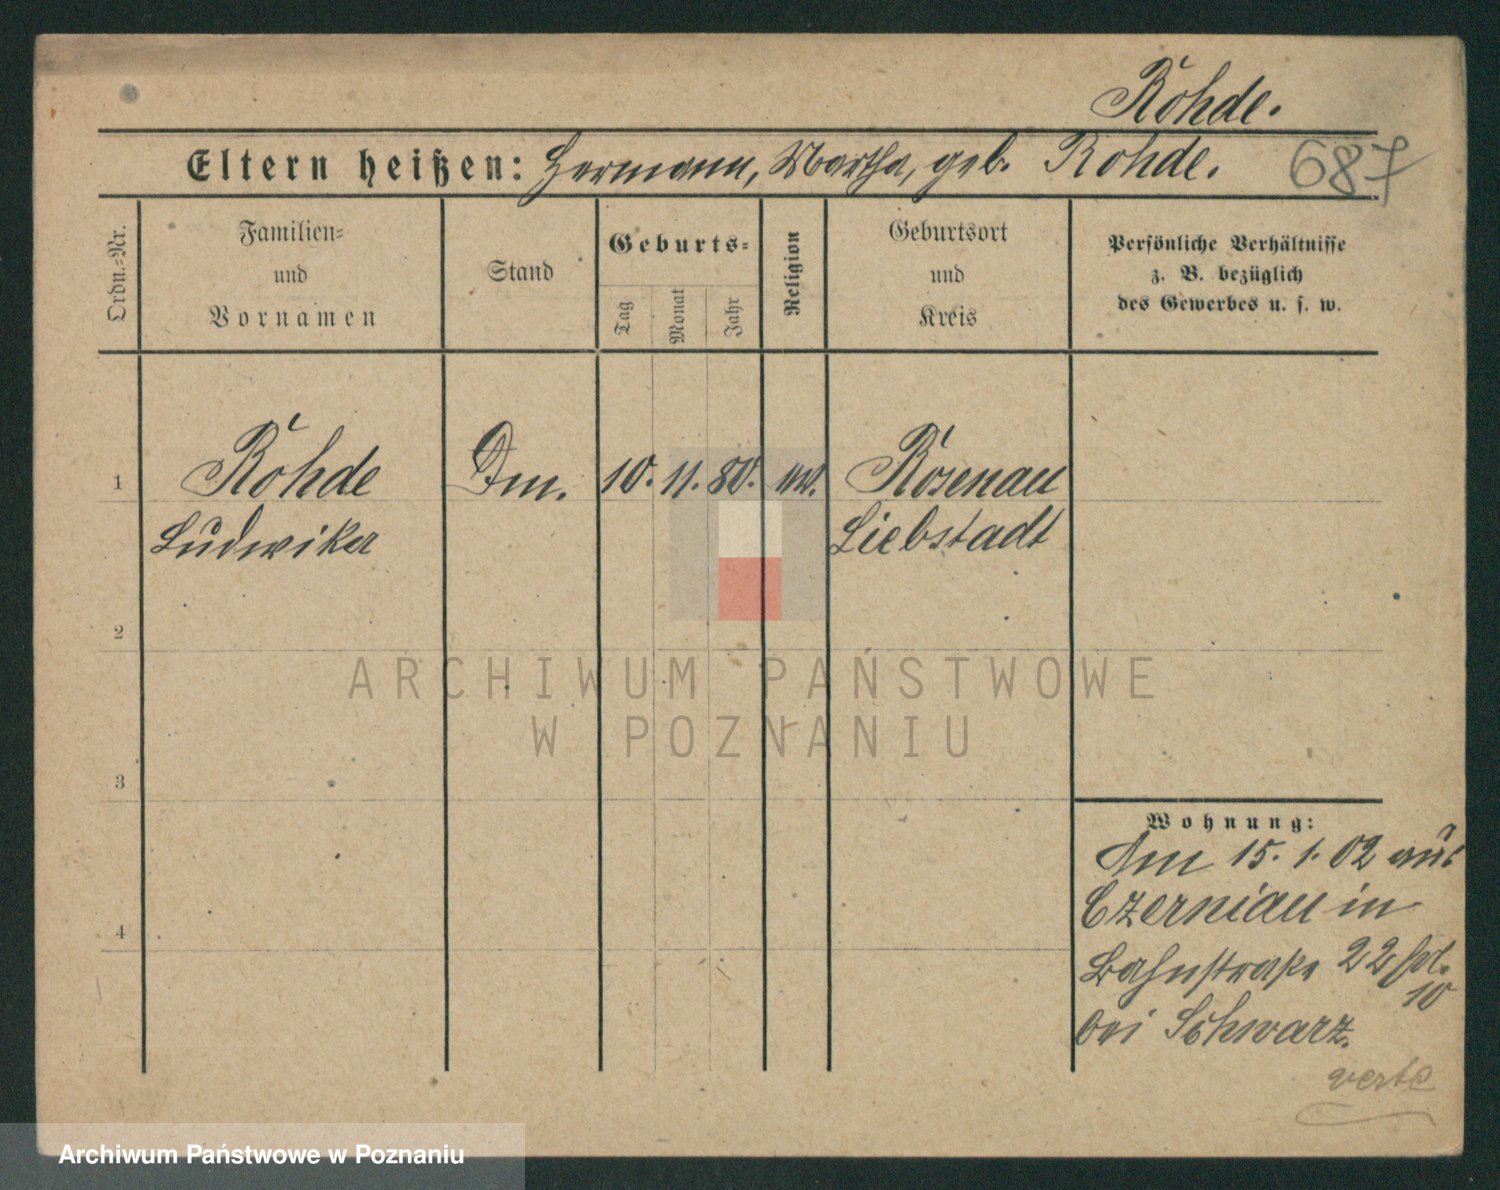 Rohde.
Eltern heißen: Hermann, Martha, geb. Rohde.
687
Ordn.=Nr.
Familien=
und
Vornamen
Stand
Geburts=
Tag
Monat
Jahr
Religion
Geburtsort
und
Kreis
Persönliche Verhältnisse
z. B. bezüglich
des Gewerbes u. s. w.
1 Rohde 10. 11. 80. Rosenau
Ludwika Liebstadt
2
3
4
ARCHIWUM PAŃSTWOWE
W POZNANIU
Wohnung:
Am 15. 1. 02 aus
Czerniau in
Bahnstraße 22
10
bei Schwarz.
verte
Archiwum Państwowe w Poznaniu